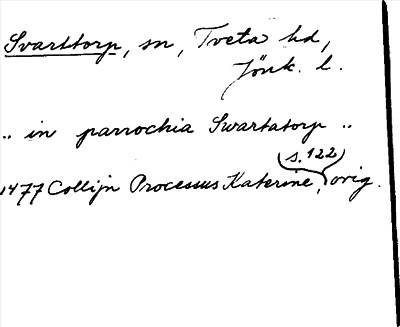 Svarttorp, sn, Tveta hd,
Jönk. l.
.. in parrochia Swartatorp ..
(s. 122)
1477 Collijn Processus Katerine, orig.